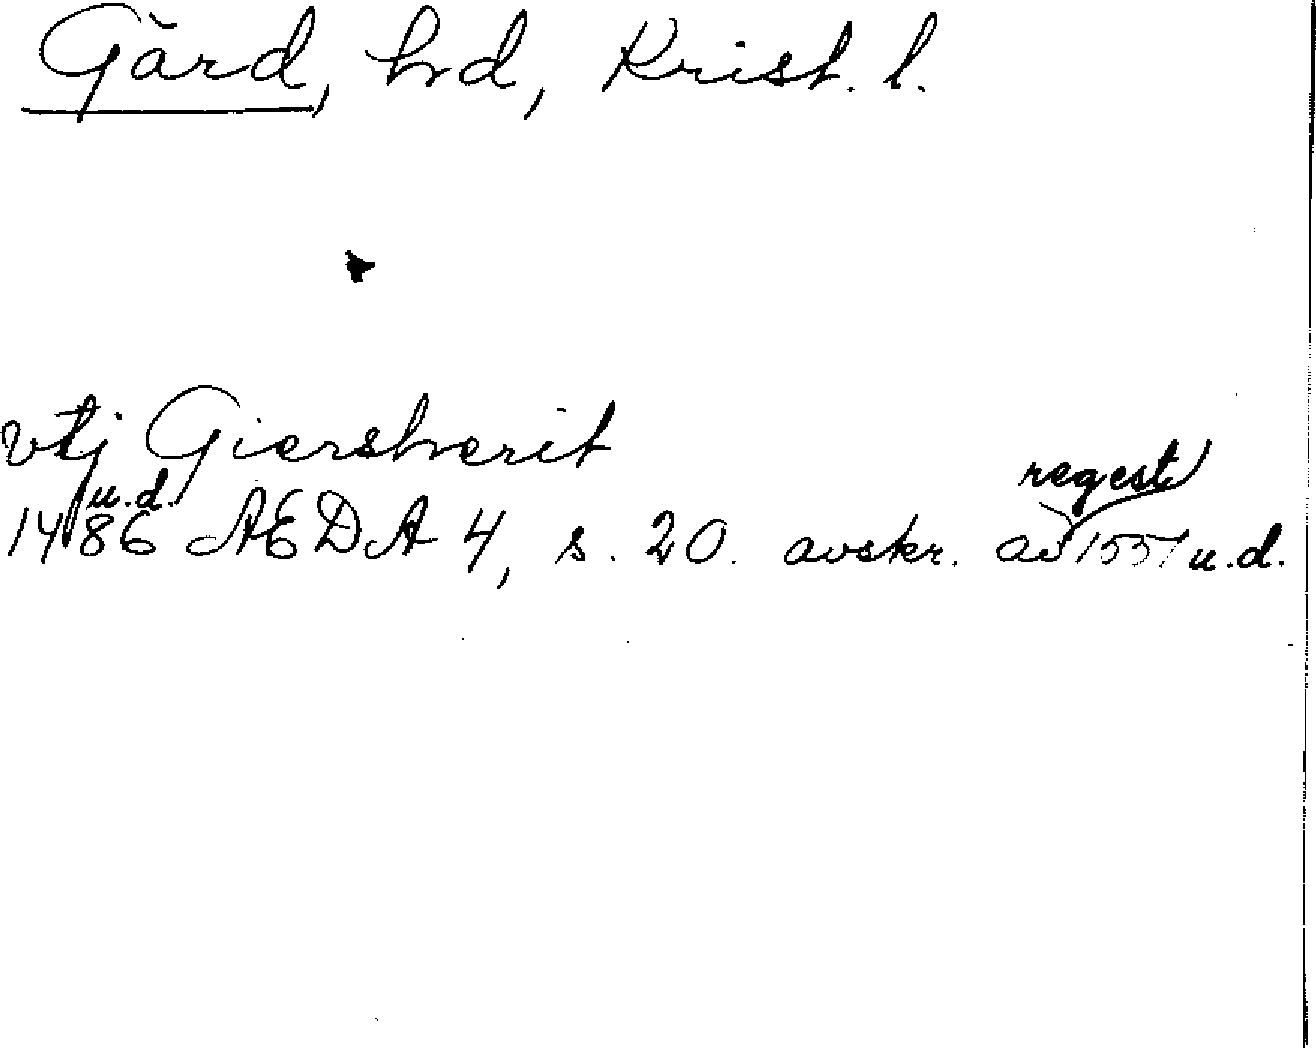 Gärd, hd, Krist. l.
vtj Giersherit
1486 u.d. AEDA 4, s. 20. avskr. av regest 1551 u.d.